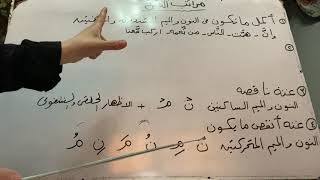 مراتب الغنة
① أكمل ما تكون فى النون والميم المشددتين والمدغمتين
إنَّ - همَّت - النَّاس - من نِّعمة - اركب مَّعنا
②
غنة ناقصة
النون والميم الساكنين نْ مْ + الإظهار الحلقى والشفوى
غنة أنقص ما يكون
النون والميم المتحركتين نَ مِ نُ مَ نِ مُ